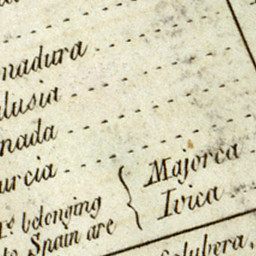 nadura
lusia
nada
urcia
Is. belonging
to Spain are
Majorca
Ivica
lubera,